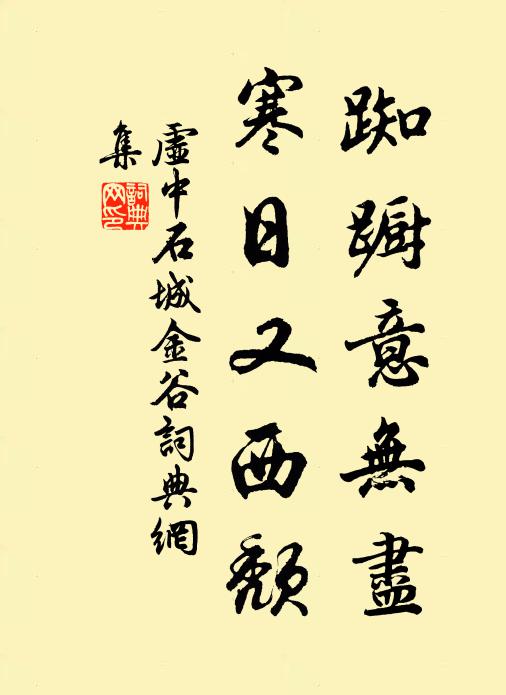 踟蹰意無盡
寒日又西頹
虛中石城金谷詞典網
集
詞典網印